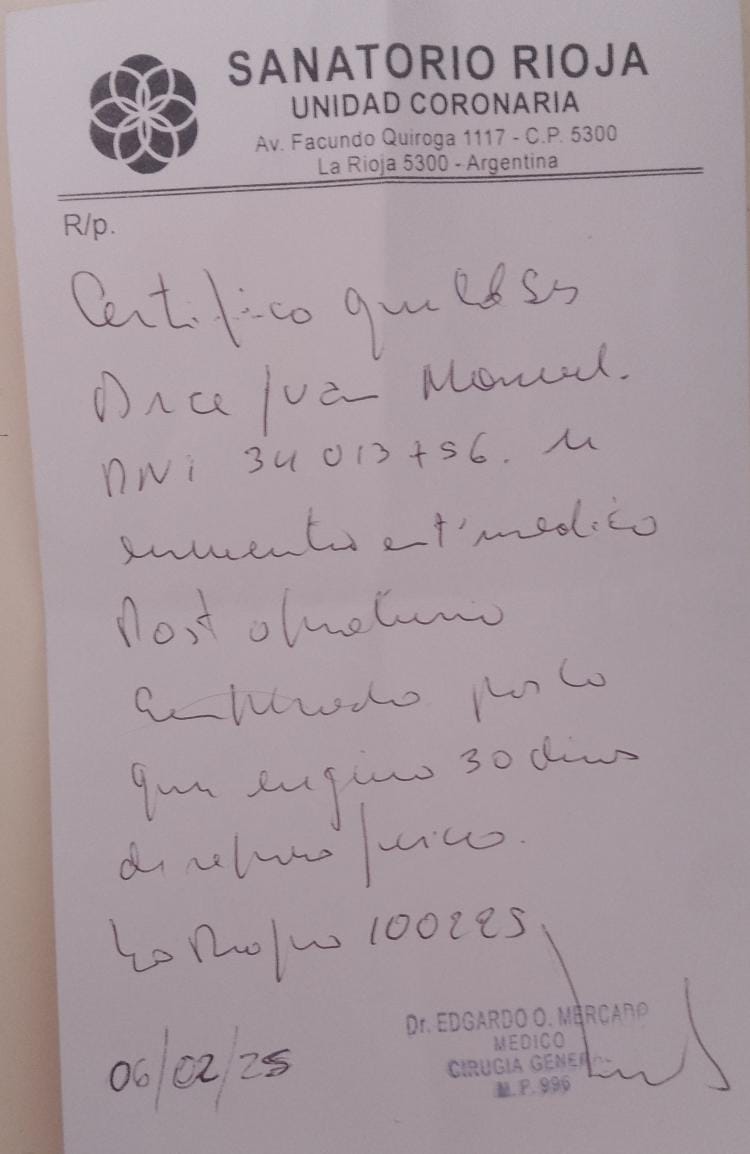 SANATORIO RIOJA
UNIDAD CORONARIA
Av. Facundo Quiroga 1117 - C.P. 5300
La Rioja 5300 - Argentina
R/p.
Certifico que el Sr
Arce Juan Manuel.
DNi 34 013 756. se
encuentra en t' medico
Post operatorio
por lo
que sugiero 30 dias
de reposo fisico.
La Rioja 100225
06/02/25
Dr. EDGARDO O. MERCADO
MEDICO
CIRUGIA GENERAL
M.P. 996